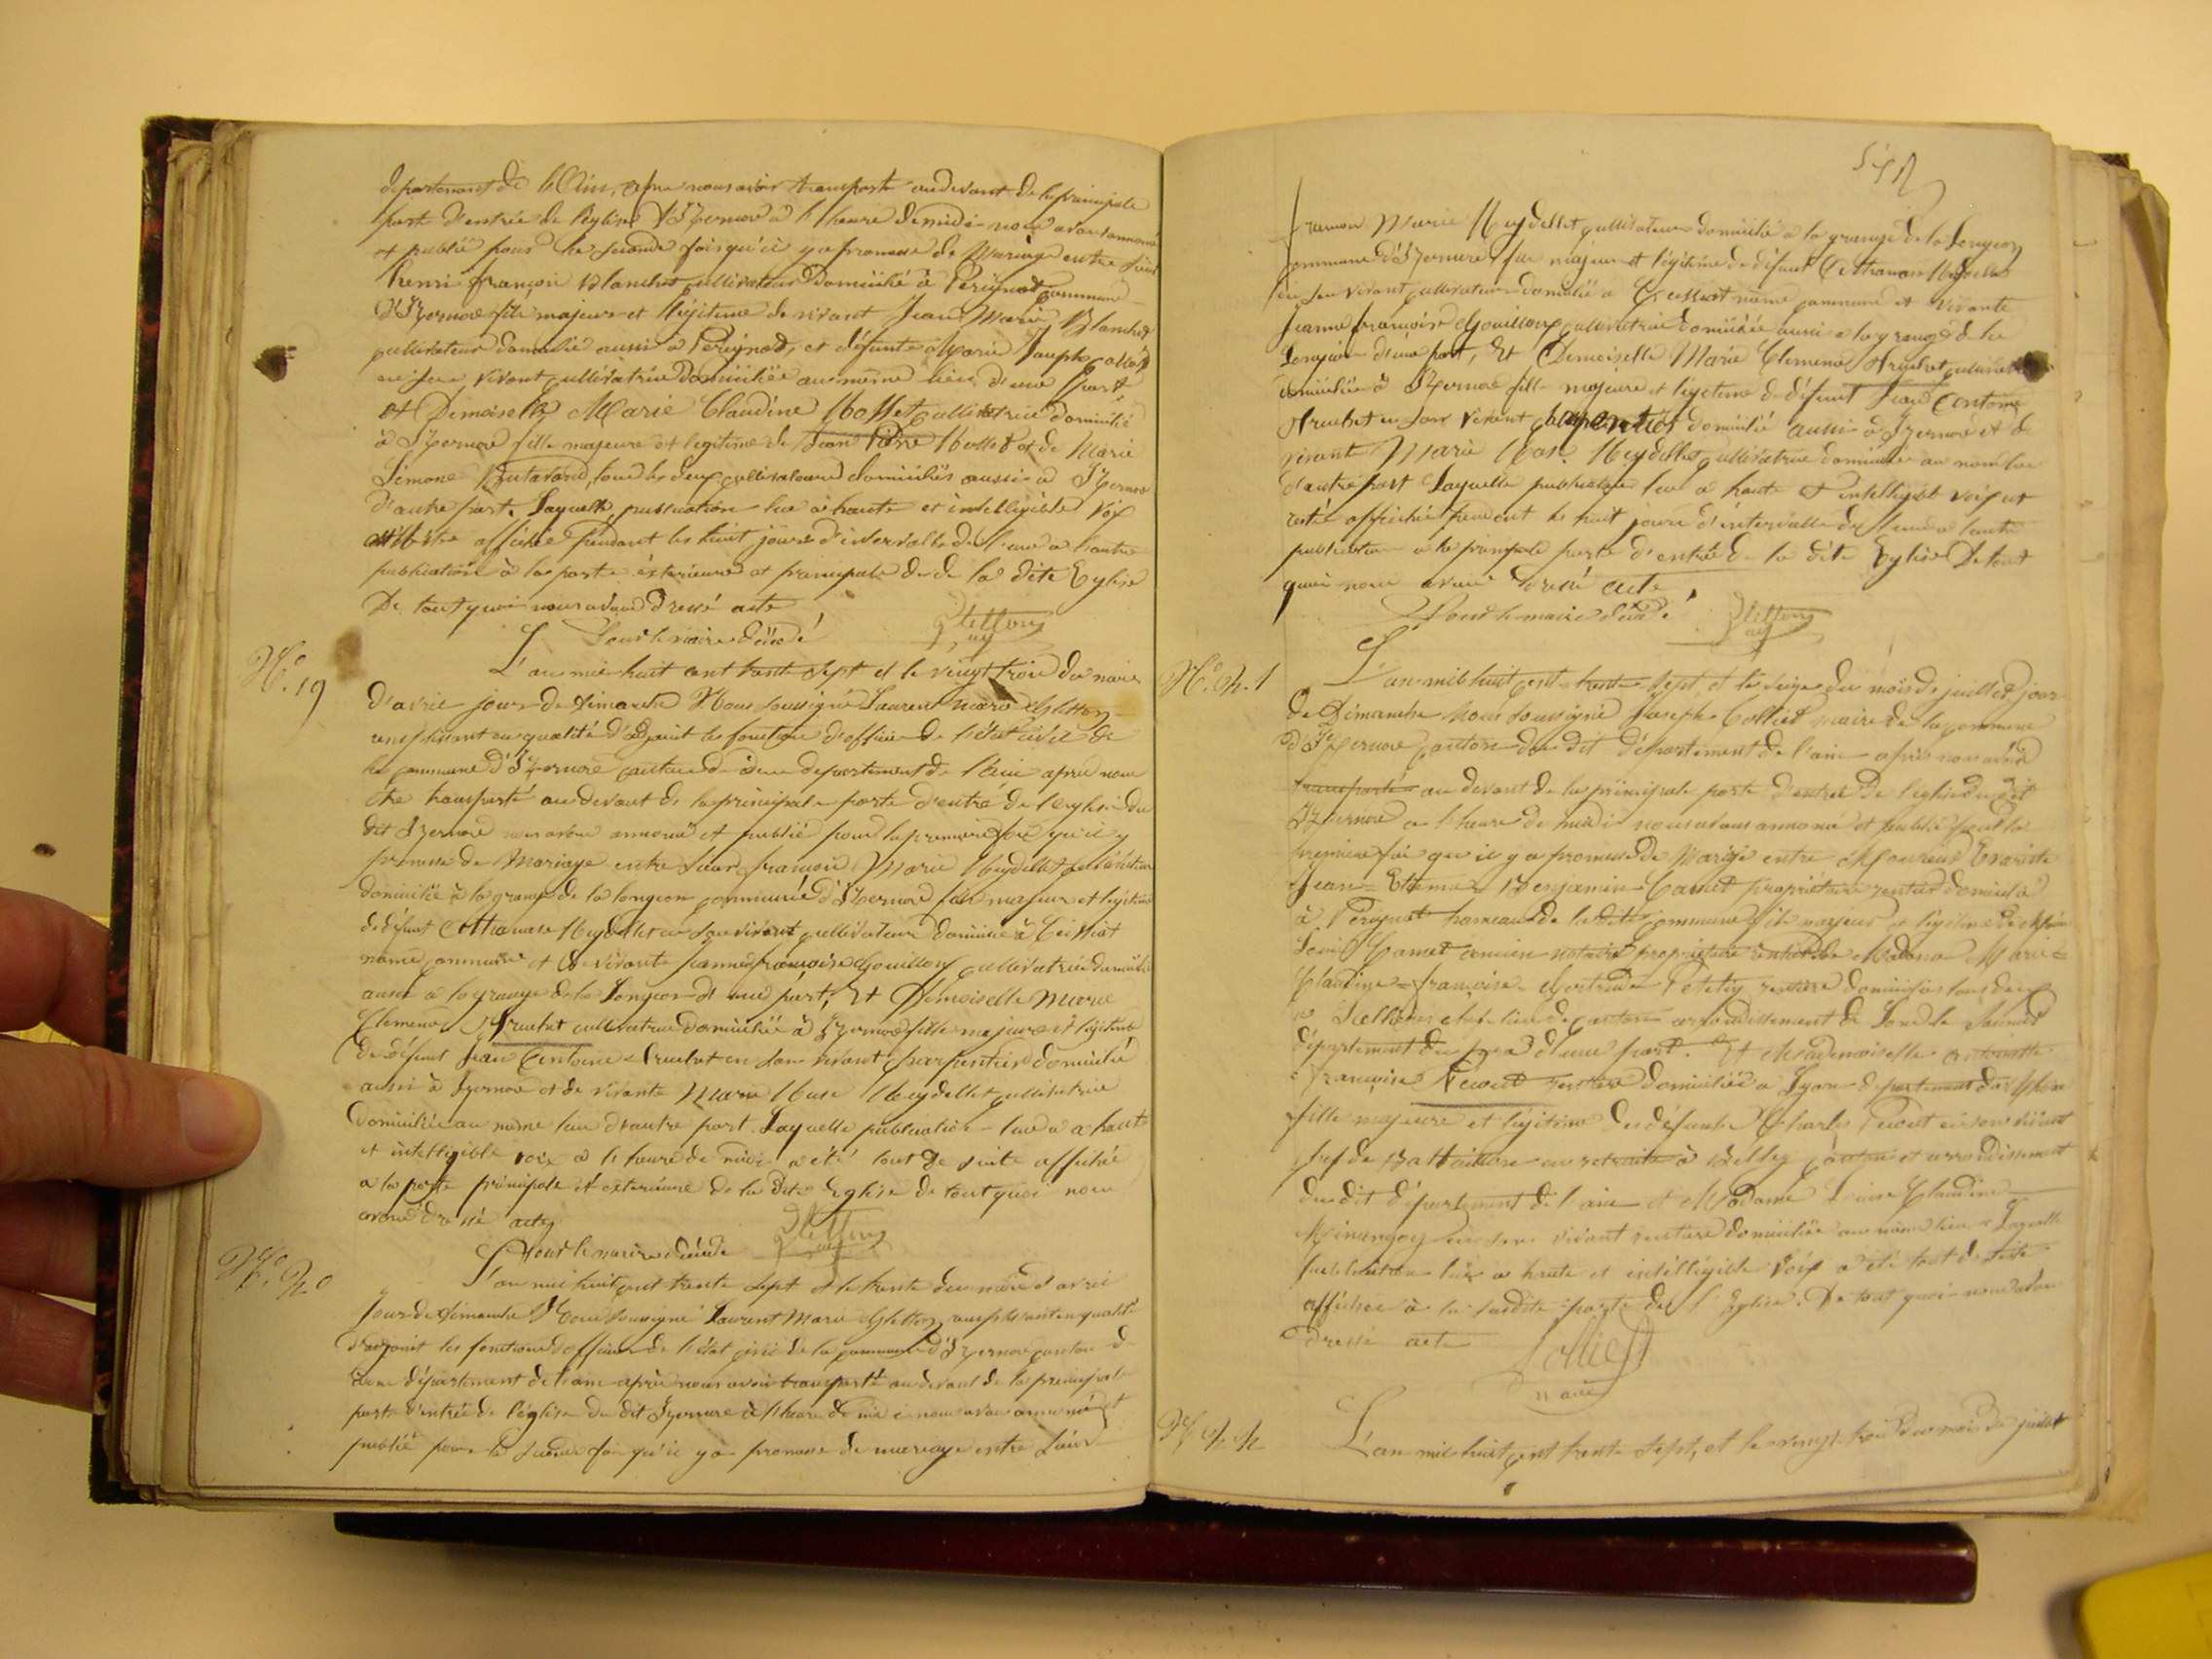 département de l'Ain, après nous avoir transporté audevant de la principale
porte d'entrée de l'église d'Izernore à l'heure de midi nous avons annoncé
et publié pour la seconde fois qu'il y a promesse de Mariage entre Sieur
henri françois Blanchet cultivateur domicilié à Perignat commune
d'Izernore fils majeur et légitime de vivant Jean Marie Blanchet
cultivateur domicilié aussi à Perignat, et défunte Marie Josephe
en son vivant cultivatrice domiciliée au même lieu d'une part,
Et Demoiselle Marie Claudine cultivatrice domicilié
à Izernore fille majeure et legitime de Jean Pierre et de Marie
Simone tous les deux cultivateurs domiciliés aussi à Izernore
d'autre part. Laquelle publication lue à haute et intelligible voix
affichée pendant les huit jours d'intervalle de l'une à l'autre
publication à la porte extérieure et principale de de la dite Eglise
De tout quoi nous avons dressé acte
Pour le maire décédé
N.° 19
L'an mil huit cent trente sept et le vingt trois du mois
d'avril jour de dimanche Nous soussigné Laurent marie
remplissant en qualité d'adjoint les fonctions d'officier de l'état civil de
la commune d'Izernore canton de département de l'Ain après nous
être transporté au devant de la principale porte d'entré de l'eglise du
dit Izernore nous avons annoncé et publié pour la premiere fois qu'il y
promesse de Mariage entre Sieur françois Marie Reydellet cultivateur
domicilié à la grange de la longeon commune d'Izernore fils majeur et legitime
de défunt Athanase Reydellet en son vivant cultivateur domicilié à Ceissiat
même commune et de vivante Jeanne françoise Gouilloux cultivatrice domiciliée
aussi a la grange de la Longeon d'une part, Et Demoiselle Marie
Clemence cultivatrice domiciliée à Izernore fille majeure et légitime
de défunt Jean Antoine en son vivant charpentier domicilié
aussi à Izernore et de vivante Marie Rose Reydellet cultivatrice
domiciliée au même lieu d'autre part. Laquelle publication lue à a haute
et intelligible voix à l'heure de midi a été tout de suite affichée
a la porte principale et exterieure de la dite Eglise de tout quoi nous
avons dressé acte
Pour le maire décédé
N.° 20
L'an mil huit cent trente sept et le trente du mois d'avril
jour de dimanche Nous soussigné Laurent Marie remplissant en qualité
d'adjoint les fonctions d'officier de l'état civil de la commune d'Izernore canton de
département de l'ain après nous avoir transporté au devant de la principale
porte d'entrée de l'église du dit Izernore à l'heure de midi nous avons annoncé et
publié pour la seconde fois qu'il y a promesse de mariage entre Sieur
françois Marie Reydellet cultivateur domicilié à la grange de la Longeon
commune d'Izernore fils majeur et légitime de défunt Athanase Reydellet
en son vivant cultivateur domicilié à Ceissiat même commune et vivante
Jeanne françoise Gouilloux cultivatrice domiciliée aussi a la grange de la
Longeon d'une part, Et Demoiselle Marie Clemence cultivatrice
domiciliée à Izernore fille majeure et légitime de défunt Jean Antoine
en son vivant charpentier domicilié aussi à Izernore et de
vivante Marie Rose Reydellet cultivatrice domiciliée au même lieu
d'autre part Laquelle publication lue à haute et intelligible voix est
restée affichée pendant les huit jours d'intervalle de l'une à l'autre
publication à la principale porte d'entrée de la dite Eglise De tout
quoi nous avons dressé acte
Pour le maire décédé
N.° 21
L'an mil huit cent trente sept, et le seize du mois de juillet jour
de Dimanche Nous soussigné Joseph Colliet maire de la commune
d'Izernore canton du dit département de l'ain après nous avoir
transporté au devant de la principale porte d'entrée de l'eglise du dit
Izernore a l'heure de midi nous avons annoncé et publié pour la
première fois qu'il y a promesse de Mariage entre Monsieur Evariste
Jean = Etienne = Benjamin Camet propriétaire rentier domicilié
à Perignat hameau de la dite commune fils majeur et légitime de
Louis Camet ancien notaire propriétaire rentier de Madame Marie =
Claudine = françoise = Gertrude rentière domiciliés tous deux
à chef lieu de canton arrondissement de Lons le Saunier
département du jura d'une part. Et Mademoiselle antoinette
françoise rentiere domiciliée à Lyon département du Rhône
fille majeure et légitime de défunt Charles en son vivant
chef de Battaillon en retraite à Belley canton et arrondissement
du dit département de l'ain et Madame Claudine
en son vivant rentière domiciliée au même lieu Laquelle
publication lue a haute et intelligible voix a été tout de suite
affichée à la susdite porte de l'Eglise. De tout quoi nous avons
dressé acte
Colliet
maire
N 22
L'an mil huit cent trente sept, et le vingt trois du mois de juillet